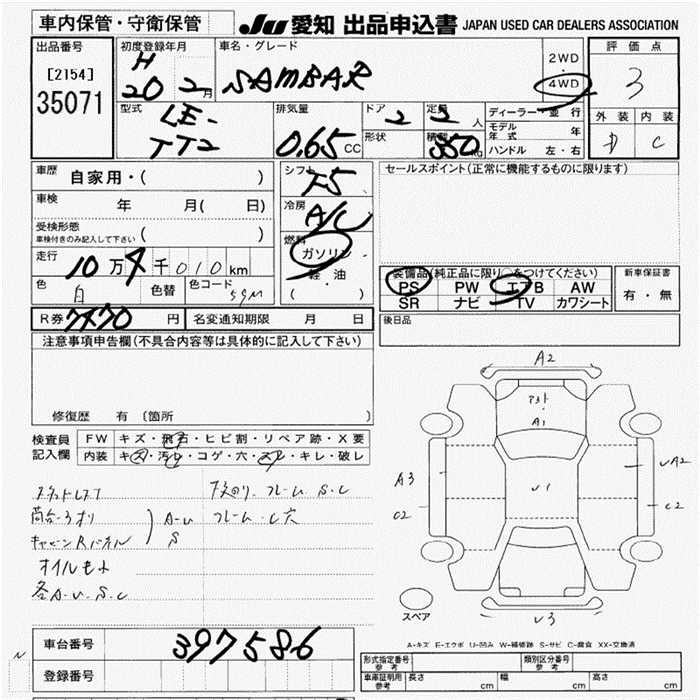 車内保管・守衛保管
JU 愛知 出品申込書 JAPAN USED CAR DEALERS ASSOCIATION
出品番号
[2154]
35071
初度登録年月
H
20 2月
車名・グレード
SAMBAR
2WD
・
4WD
評価点
3
外装 内装
D C
型式
LE-
TT2
排気量
0.65 CC
ドア
2
形状
定員
2 人
積載
350 kg
ディーラー・並行
モデル年式 年
ハンドル 左・右
車歴
自家用・( )
車検
年 月( 日)
受検形態
車検付きのみ記入して下さい ( )
走行
10万4千010km
色 白 色替 色コード 59M
シフト
F5
冷房
A/C
燃料
ガソリン
軽油
( )
セールスポイント(正常に機能するものに限ります)
装備品(純正品に限り をつけてください)
PS PW エアB AW
SR ナビ TV カワシート
新車保証書
有・無
R券 7470 円 名変通知期限 月 日
後日品
注意事項申告欄(不具合内容等は具体的に記入して下さい)
修復歴 有 〔箇所
検査員
記入欄
FW キズ・飛石・ヒビ割・リペア跡・X要
内装 キズ・汚レ・コゲ・穴・スレ・キレ・破レ
下廻り フレーム S.C
A-U フレーム C穴
S
オイルもれ
各A.U.S.C
A2
A1
A3
C2
U1
UA2
C2
U3
スペア
A-キズ E-エクボ U-凹み W-補修跡 S-サビ C-腐食 XX-交換済
車台番号 397586
登録番号
N
形式指定番号
参考
類別区分番号
参考
車庫証明用
参考
長さ cm 幅 cm 高さ cm